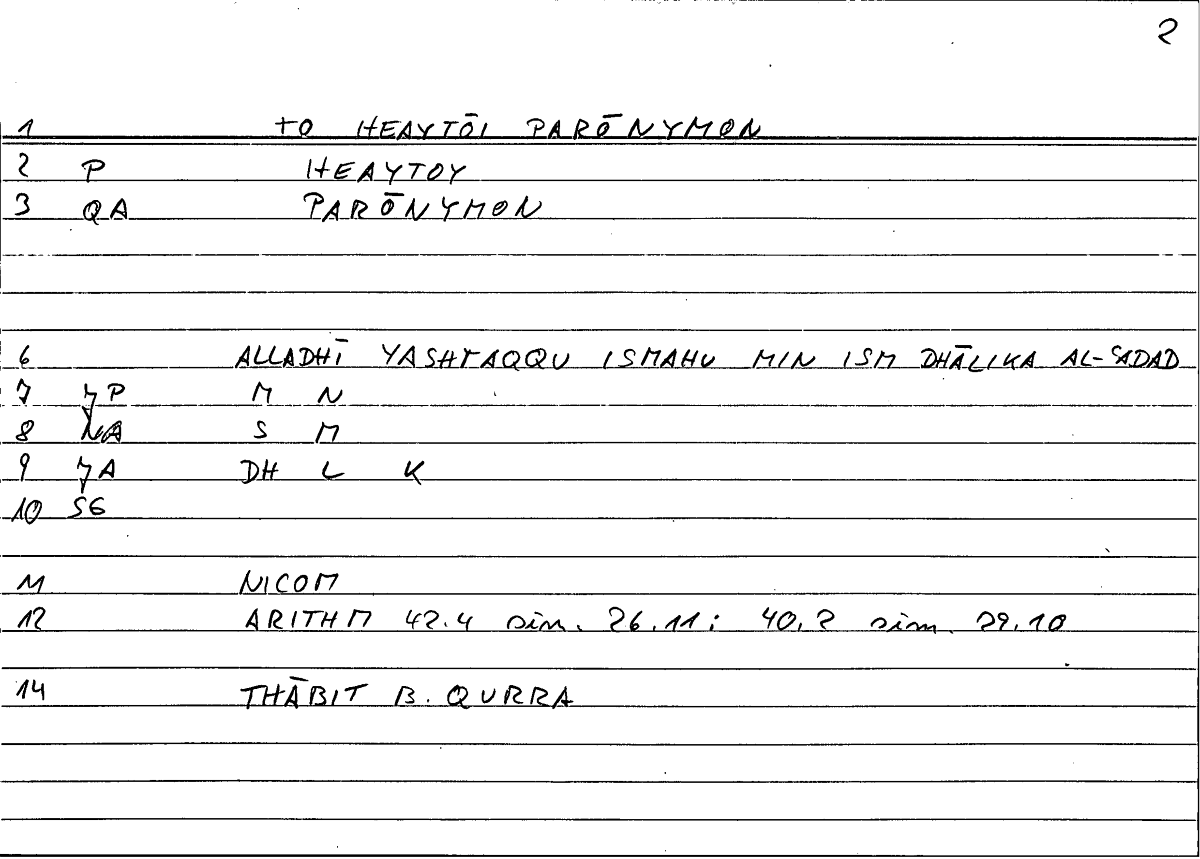 2
1 TO HEAYTŌI PARŌNYMON
2 P HEAYTOY
3 QA PARŌNYMON
6 ALLADHĪ YASHTAQQU ISMAHU MIN ISM DHĀLIKA AL-ʿADAD
7 P M N
8 NA S M
9 A DH L K
10 SG
11 NICOM
12 ARITHM 42.4 sim. 26.11; 40.2 sim. 29.10
14 THĀBIT B. QURRA